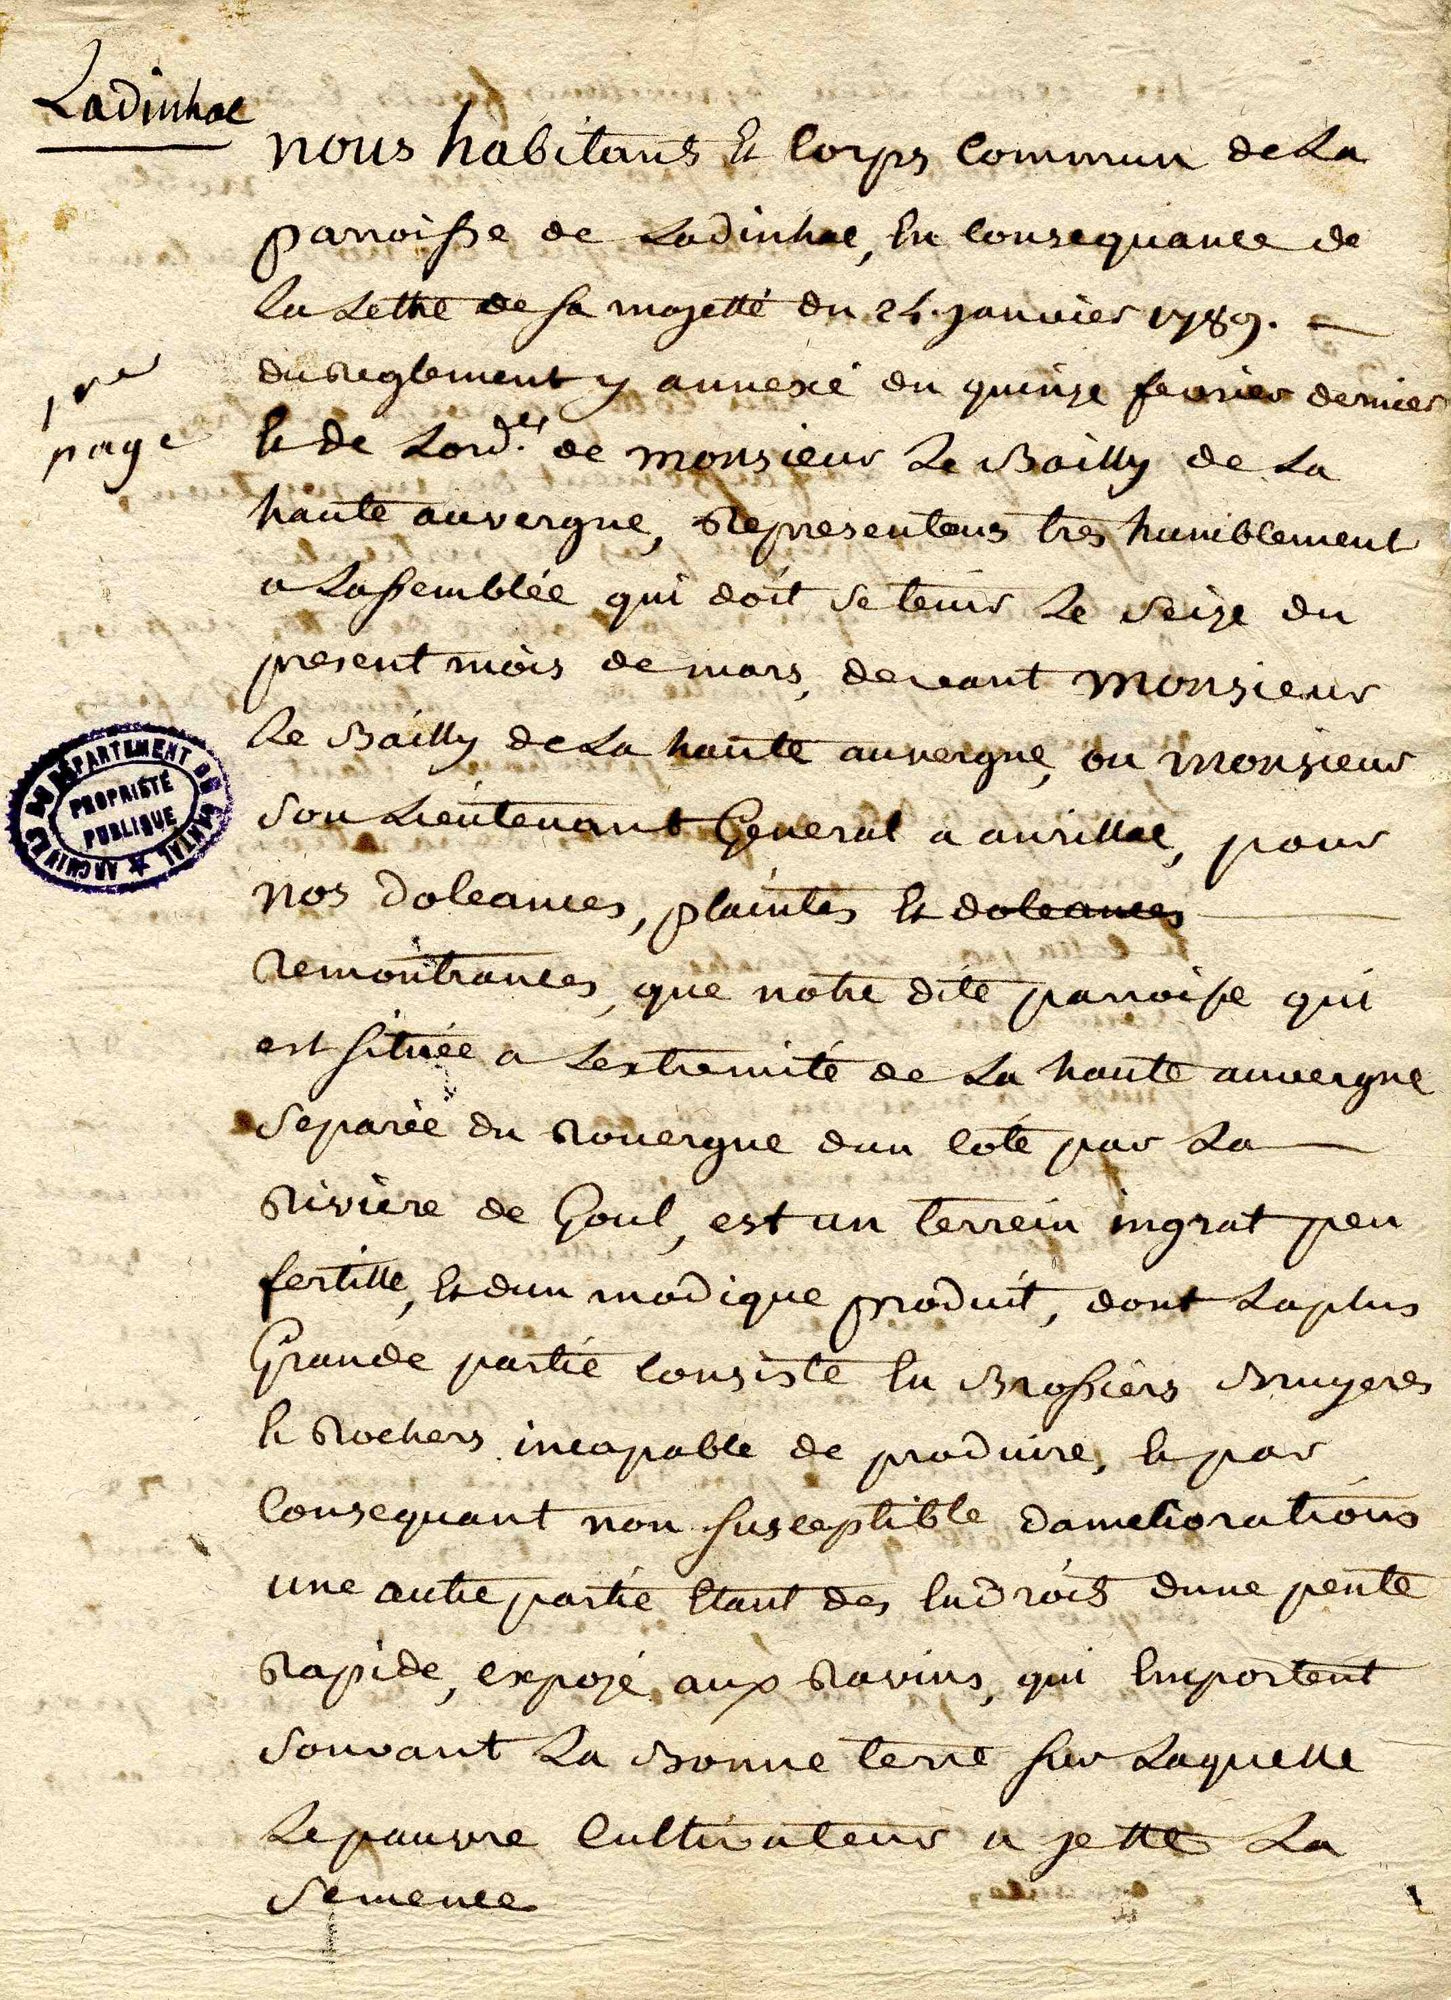 Ladinhac
nous habitans et corps commun de la
parroisse de Ladinhac, en consequance de
la lettre de sa majetté du 24. janvier 1789.
du reglement y annexé du quinze fevrier dernier
1re
page
et de lord.ce de monsieur le Bailly de la
haute auvergne, Representons tres humblement
a lassemblée qui doit se tenir le seize du
present mois de mars, devant monsieur
le Bailly de la haute auvergne, ou monsieur
son Lieutenant General a aurillac, pour
nos doleances, plaintes et doleances
remontrances, que notre dite parroisse qui
est située a lextremité de la haute auvergne
separée du Rouergue dun coté par la
Riviere de Goul, est un terrein ingrat peu
fertille, et dun modique produit, dont la plus
Grande partie consiste en Brossiers Bruyeres
et Rochers incapable de produire, et par
consequant non susceptible dameliorations
une autre partie etant des endroits dune pente
Rapide, expozé aux Ravins, qui emportent
souvant la Bonne terre sur laquelle
le pauvre cultivateur a jetté la
semence
ARCHIVES DU DÉPARTEMENT DU CANTAL
PROPRIÉTÉ
PUBLIQUE